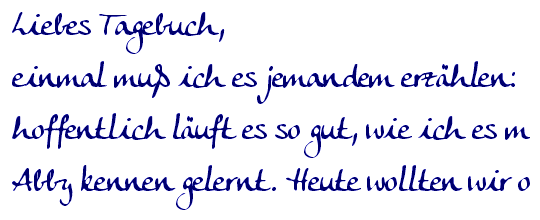 Liebes Tagebuch,
einmal muß ich es jemandem erzählen:
hoffentlich läuft es so gut, wie ich es m
Abby kennen gelernt. Heute wollten wir o